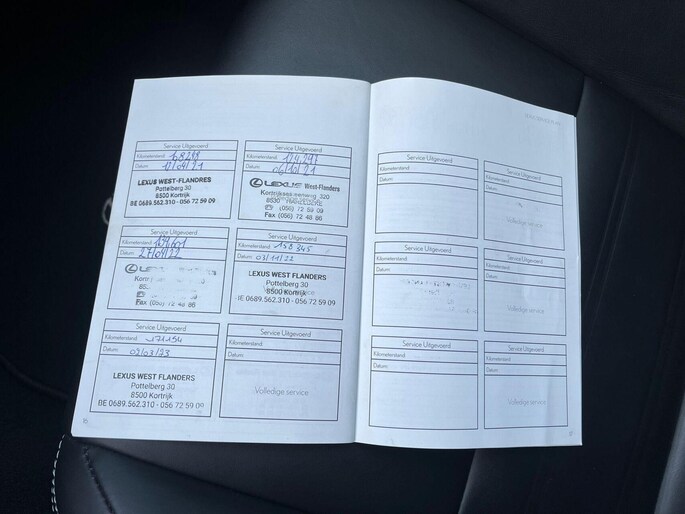 Service Uitgevoerd
Kilometerstand
Datum:
LEXUS WEST-FLANDRES
Pottelberg 30
8500 Kortrijk
BE 0689.562.310 - 056 72 59 09
Service Uitgevoerd
Kilometerstand
Datum: 06/10/21
LEXUS West-Flanders
320
8530
(056) 72 59 09
Fax (056) 72 48 86
Service Uitgevoerd
Kilometerstand
Datum: 27/04/22
LEXUS
Fax (056) 72 48 86
Service Uitgevoerd
Kilometerstand 158 345
Datum: 03/11/22
LEXUS WEST FLANDERS
Pottelberg 30
8500 Kortrijk
BE 0689.562.310 - 056 72 59 09
Service Uitgevoerd
Kilometerstand 171154
Datum: 09/03/23
LEXUS WEST FLANDERS
Pottelberg 30
8500 Kortrijk
BE 0689.562.310 - 056 72 59 09
Service Uitgevoerd
Kilometerstand:
Datum:
Volledige service
Service Uitgevoerd
Kilometerstand:
Datum:
Service Uitgevoerd
Kilometerstand:
Datum:
Volledige service
Service Uitgevoerd
Kilometerstand:
Datum:
Service Uitgevoerd
Kilometerstand:
Datum:
Volledige service
Service Uitgevoerd
Kilometerstand:
Datum:
Service Uitgevoerd
Kilometerstand:
Datum:
Volledige service